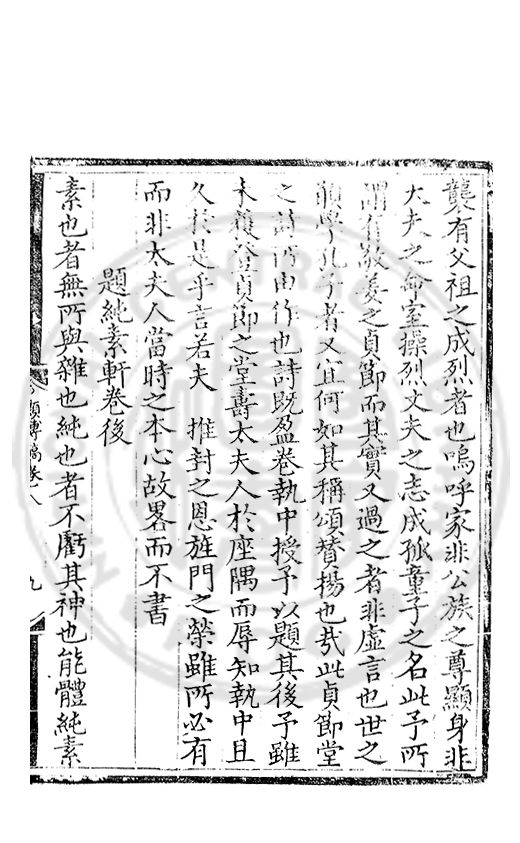 襲有父祖之成烈者也嗚呼家非公族之尊顯身非
大夫之命室操烈丈夫之志成孤童子之名此予所
謂有敬姜之貞節而其實又過之者非虛言也世之
願學孔子者又宜何如其稱頌賛揚也哉此貞節堂
之詩所由作也詩既盈卷執中授予以題其後予雖
未獲登貞節之堂壽太夫人於座隅而辱知執中且
久於是乎言若夫 推封之恩旌門之榮雖所必有
而非太夫人當時之本心故畧而不書
題純素軒卷後
素也者無所與雜也純也者不虧其神也能體純素
頤 稿卷八
九